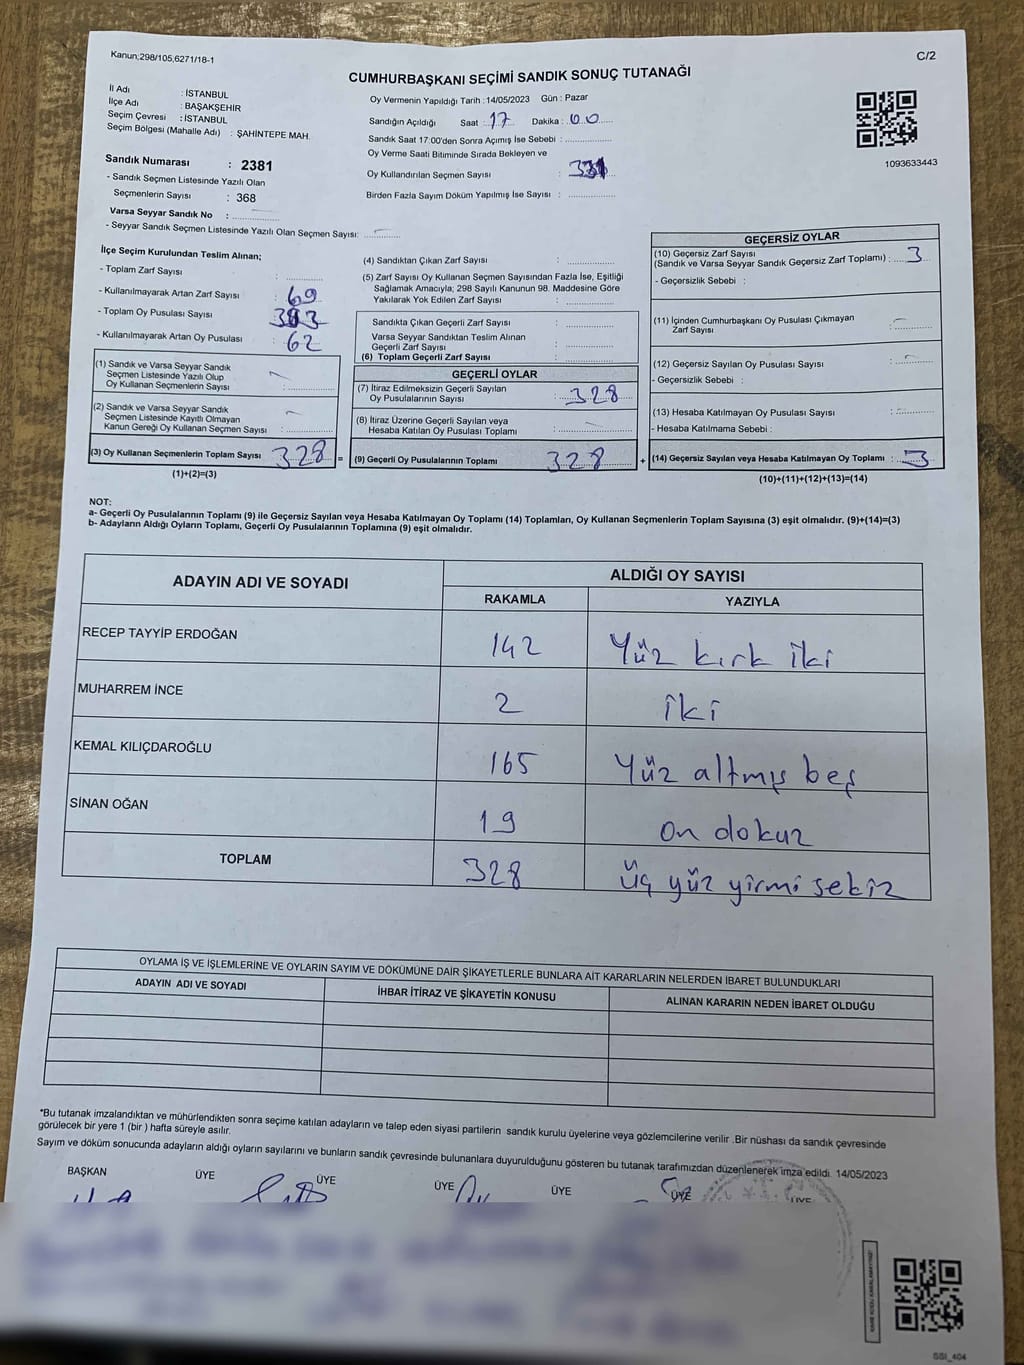 Kanun;298/105,6271/18-1
C/2
CUMHURBAŞKANI SEÇİMİ SANDIK SONUÇ TUTANAĞI
İl Adı : İSTANBUL
İlçe Adı : BAŞAKŞEHİR
Seçim Çevresi : İSTANBUL
Seçim Bölgesi (Mahalle Adı) : ŞAHİNTEPE MAH.
Sandık Numarası : 2381
- Sandık Seçmen Listesinde Yazılı Olan
Seçmenlerin Sayısı : 368
Varsa Seyyar Sandık No :
- Seyyar Sandık Seçmen Listesinde Yazılı Olan Seçmen Sayısı:
Oy Vermenin Yapıldığı Tarih : 14/05/2023 Gün : Pazar
Sandığın Açıldığı Saat : 17 Dakika : 00
Sandık Saat 17:00'den Sonra Açımış İse Sebebi :
Oy Verme Saati Bitiminde Sırada Bekleyen ve
Oy Kullandırılan Seçmen Sayısı :
Birden Fazla Sayım Döküm Yapılmış İse Sayısı :
1093633443
İlçe Seçim Kurulundan Teslim Alınan;
- Toplam Zarf Sayısı :
- Kullanılmayarak Artan Zarf Sayısı : 69
- Toplam Oy Pusulası Sayısı :
- Kullanılmayarak Artan Oy Pusulası : 62
(1) Sandık ve Varsa Seyyar Sandık
Seçmen Listesinde Yazılı Olup
Oy Kullanan Seçmenlerin Sayısı :
(2) Sandık ve Varsa Seyyar Sandık
Seçmen Listesinde Kayıtlı Olmayan
Kanun Gereği Oy Kullanan Seçmen Sayısı :
(3) Oy Kullanan Seçmenlerin Toplam Sayısı 328 =
(1)+(2)=(3)
(4) Sandıktan Çıkan Zarf Sayısı :
(5) Zarf Sayısı Oy Kullanan Seçmen Sayısından Fazla İse, Eşitliği
Sağlamak Amacıyla; 298 Sayılı Kanunun 98. Maddesine Göre
Yakılarak Yok Edilen Zarf Sayısı :
Sandıkta Çıkan Geçerli Zarf Sayısı :
Varsa Seyyar Sandıktan Teslim Alınan
Geçerli Zarf Sayısı :
(6) Toplam Geçerli Zarf Sayısı :
GEÇERLİ OYLAR
(7) İtiraz Edilmeksizin Geçerli Sayılan
Oy Pusulalarının Sayısı : 328
(8) İtiraz Üzerine Geçerli Sayılan veya
Hesaba Katılan Oy Pusulası Toplamı :
(9) Geçerli Oy Pusulalarının Toplamı 328 +
GEÇERSİZ OYLAR
(10) Geçersiz Zarf Sayısı
(Sandık ve Varsa Seyyar Sandık Geçersiz Zarf Toplamı) : 3
- Geçersizlik Sebebi :
(11) İçinden Cumhurbaşkanı Oy Pusulası Çıkmayan
Zarf Sayısı :
(12) Geçersiz Sayılan Oy Pusulası Sayısı :
- Geçersizlik Sebebi :
(13) Hesaba Katılmayan Oy Pusulası Sayısı :
- Hesaba Katılmama Sebebi :
(14) Geçersiz Sayılan veya Hesaba Katılmayan Oy Toplamı : 3
(10)+(11)+(12)+(13)=(14)
NOT:
a- Geçerli Oy Pusulalarının Toplamı (9) ile Geçersiz Sayılan veya Hesaba Katılmayan Oy Toplamı (14) Toplamları, Oy Kullanan Seçmenlerin Toplam Sayısına (3) eşit olmalıdır. (9)+(14)=(3)
b- Adayların Aldığı Oyların Toplamı, Geçerli Oy Pusulalarının Toplamına (9) eşit olmalıdır.
ADAYIN ADI VE SOYADI
ALDIĞI OY SAYISI
RAKAMLA YAZIYLA
RECEP TAYYİP ERDOĞAN 142 Yüz kırk iki
MUHARREM İNCE 2 iki
KEMAL KILIÇDAROĞLU 165 Yüz altmış beş
SİNAN OĞAN 19 on dokuz
TOPLAM 328 üç yüz yirmi sekiz
OYLAMA İŞ VE İŞLEMLERİNE VE OYLARIN SAYIM VE DÖKÜMÜNE DAİR ŞİKAYETLERLE BUNLARA AİT KARARLARIN NELERDEN İBARET BULUNDUKLARI
ADAYIN ADI VE SOYADI İHBAR İTİRAZ VE ŞİKAYETİN KONUSU ALINAN KARARIN NEDEN İBARET OLDUĞU
*Bu tutanak imzalandıktan ve mühürlendikten sonra seçime katılan adayların ve talep eden siyasi partilerin sandık kurulu üyelerine veya gözlemcilerine verilir .Bir nüshası da sandık çevresinde
görülecek bir yere 1 (bir ) hafta süreyle asılır.
Sayım ve döküm sonucunda adayların aldığı oyların sayılarını ve bunların sandık çevresinde bulunanlara duyurulduğunu gösteren bu tutanak tarafımızdan düzenlenerek imza edildi. 14/05/2023
BAŞKAN ÜYE ÜYE ÜYE ÜYE ÜYE ÜYE
SSI_404